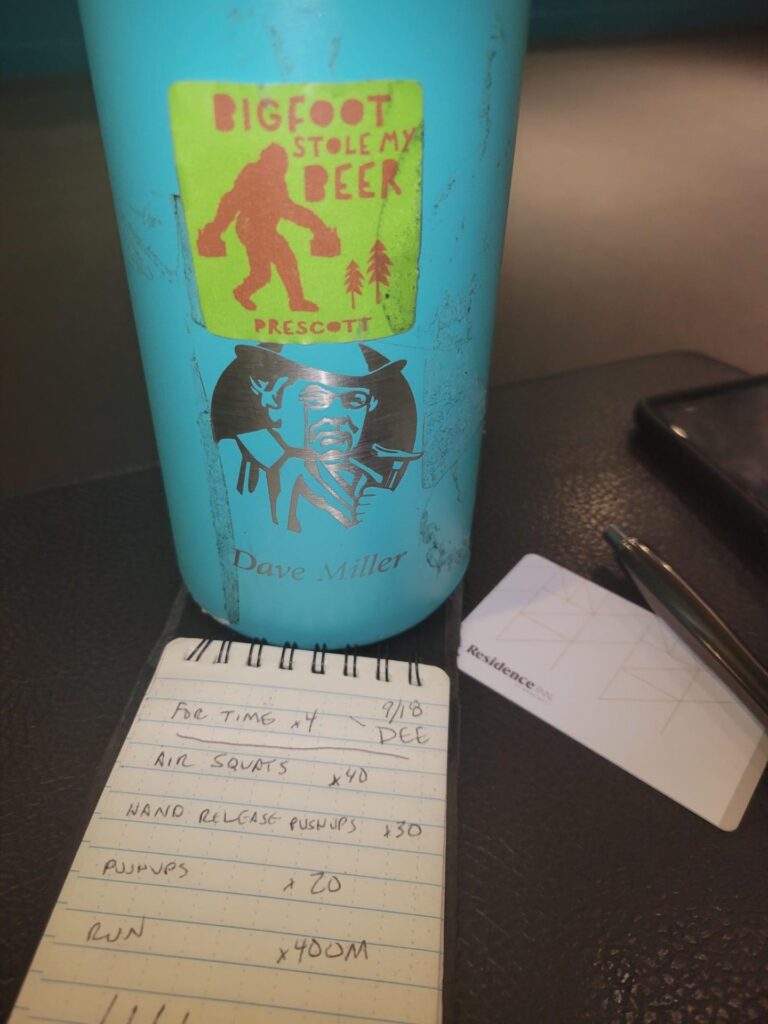 BIGFOOT
STOLE MY
BEER
PRESCOTT
Dave Miller
FOR TIME x4 - 9/18
DEE
AIR SQUATS x40
HAND RELEASE PUSHUPS x30
PUSHUPS x 20
RUN x400M
Residence INN